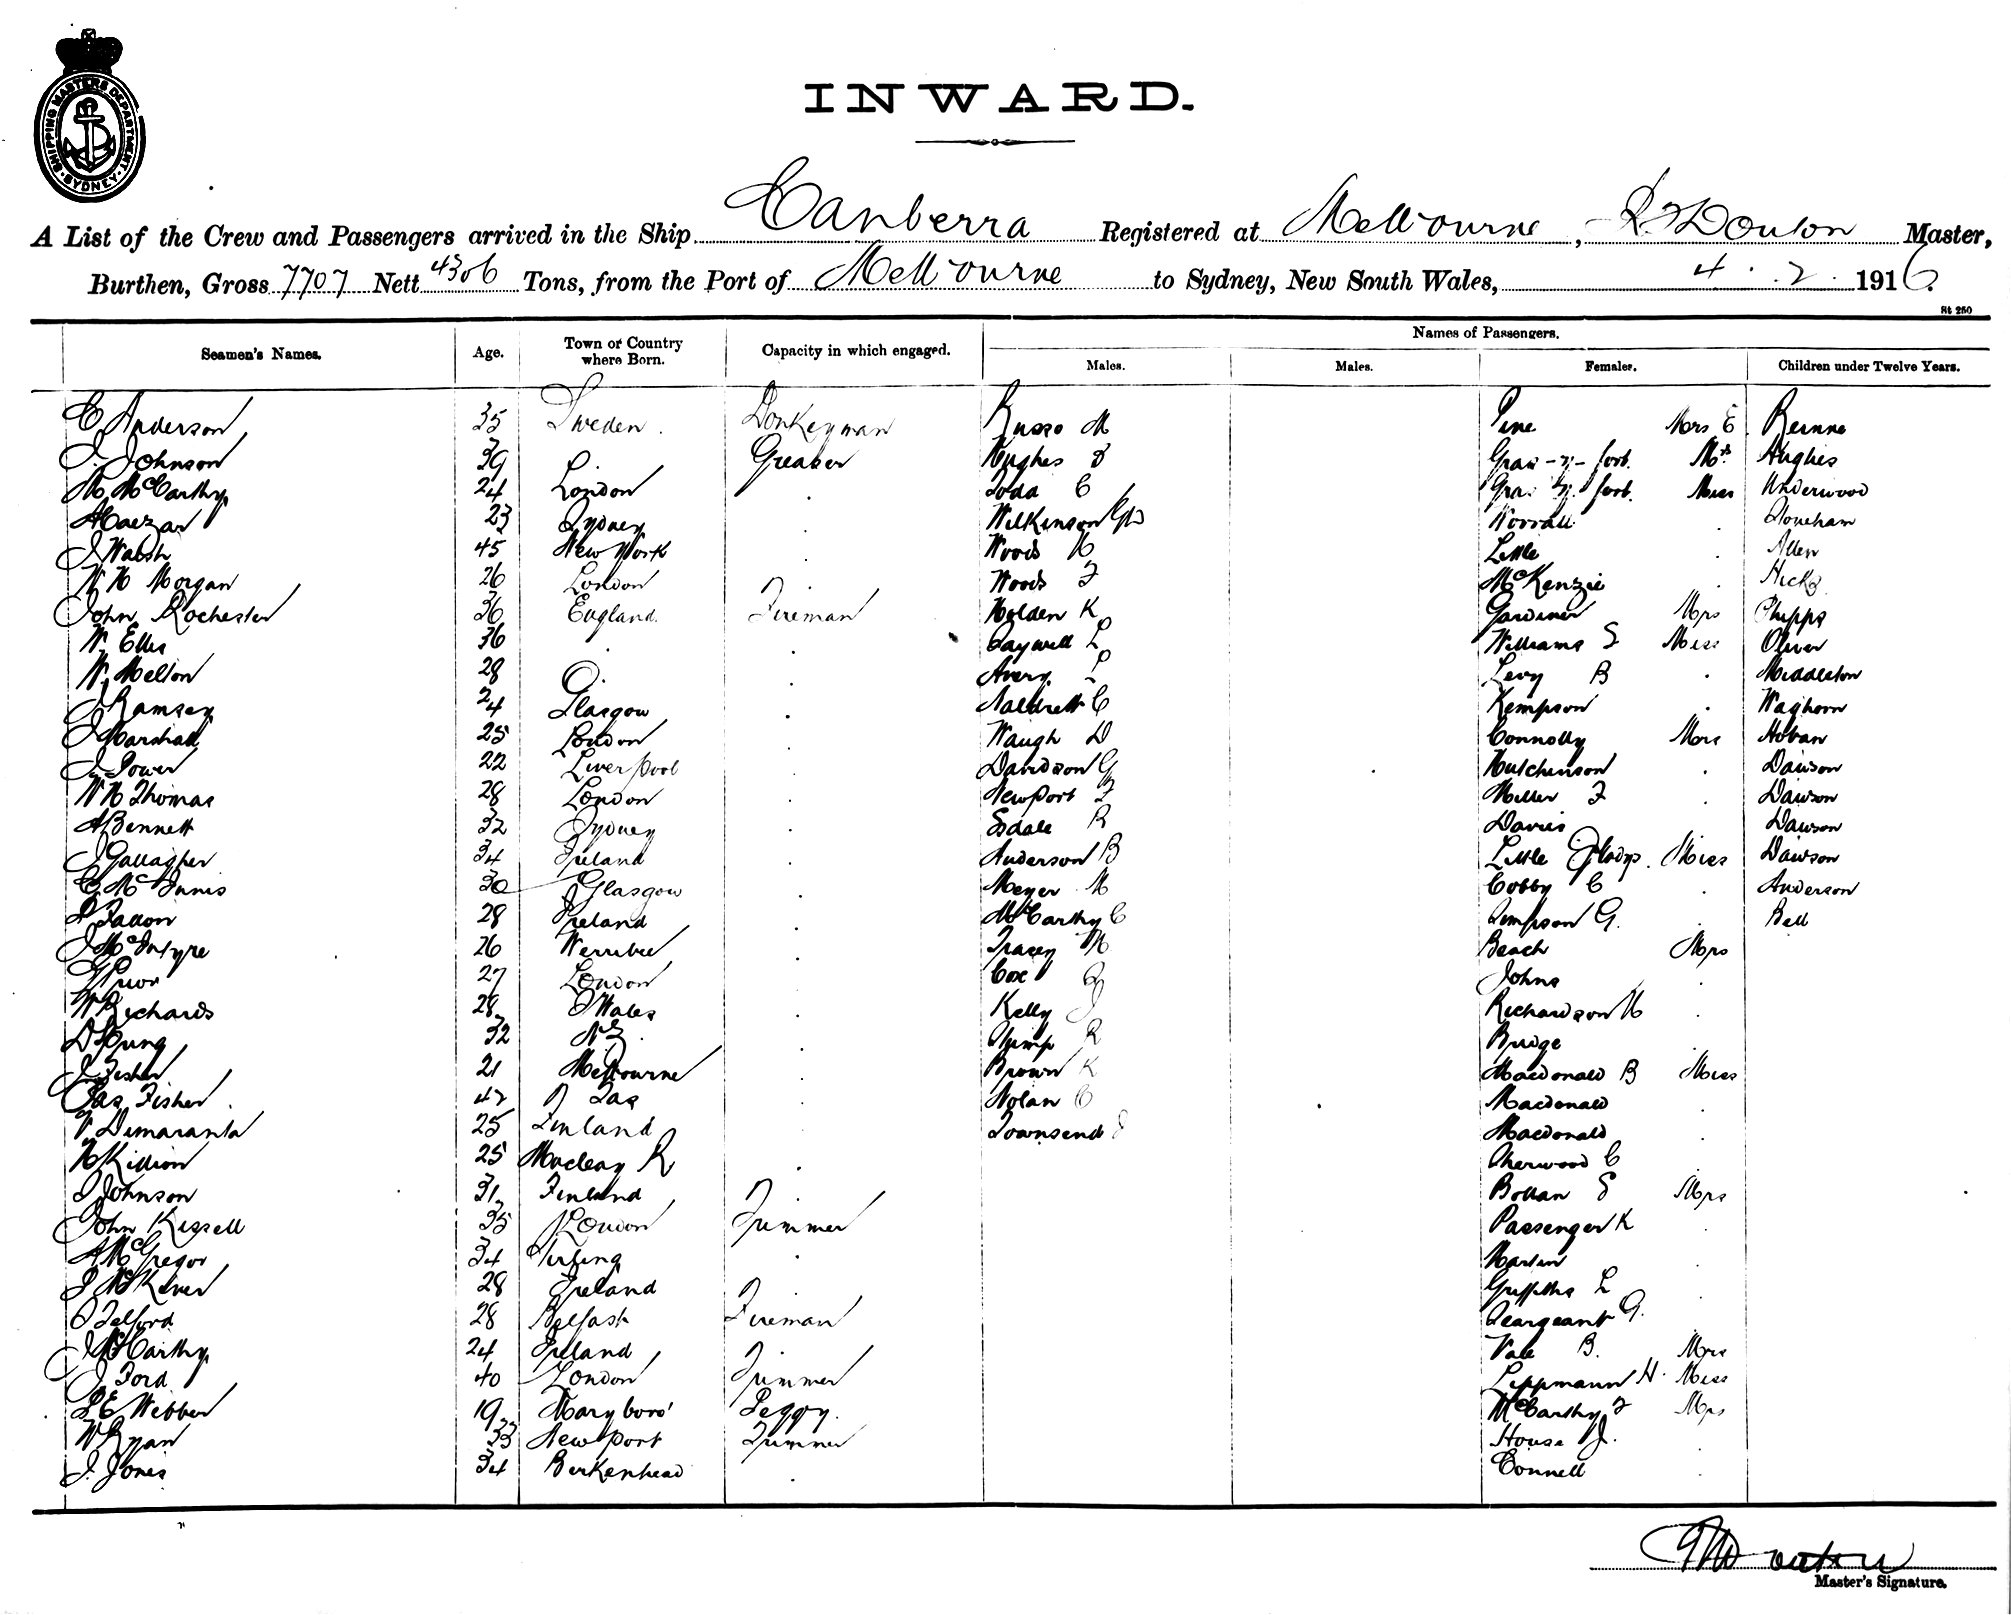 SHIPPING MASTERS DEPARTMENT
SYDNEY
INWARD.
A List of the Crew and Passengers arrived in the Ship Canberra Registered at Melbourne, Master,
Burthen, Gross 7707 Nett 4306 Tons, from the Port of Melbourne to Sydney, New South Wales, 4 . 2 . 1916.
St 250
Seamen's Names. Age. Town or Country where Born. Capacity in which engaged. Names of Passengers.
Males. Males. Females. Children under Twelve Years.
C Anderson 35 Sweden . Donkeyman Russo M Pine Mrs E
J. Johnson 39 Greaser Hughes Mrs Hughes
M McCarthy 24 London . Miss Underwood
23 Sydney . Wilkinson Worrall . Stoneham
J Walsh 45 New York . Woods H Little . Allen
W H Morgan 26 London . Woods F McKenzie . Hicks
John Rochester 36 England. Fireman Holden K Gardiner Mrs Phipps
W. Ellis 36 . . Caywell L Williams S Miss Oliver
W. Melton 28 . Avery Levy B . Middleton
J Ramsey 24 Glasgow . Naldrett C Kempson . Waghorn
J Marshall 25 London . Waugh D Connolly Mrs Hoban
J. Power 22 Liverpool . Davidson G Hutchinson . Dawson
W H Thomas 28 London . Newport F Miller F . Dawson
A Bennett 32 Sydney . Esdale R Davies . Dawson
J Gallagher 34 Ireland . Anderson B Little Gladys . Miss Dawson
C McInnis 30 Glasgow . Meyer M Cobby C . Anderson
Fallon 28 Ireland . McCarthy C Simpson G. . Bell
J McIntyre 26 Werribee . Tracey M Beach Mrs
G Prior 27 London . Cox Johns .
W Richards 28 S Wales . Kelly J Richardson H .
D Young 32 N Z . . Shimp R Budge .
J Fisher 21 Melbourne . Brown K Macdonald B Miss
Jas Fisher . 42 Tas . Nolan C Macdonald .
V Dimaranta 25 Finland . Townsend Macdonald .
H Killion 25 Macleay R . Sherwood C .
J Johnson 31 Finland Bollan E Mrs
John Kissell 35 London Trimmer Passenger K .
A McGregor 34 Stirling . Martin .
28 Ireland Griffiths L .
Telford 28 Belfast Fireman Seargeant G. .
J McCarthy 24 Ireland Vale B. Mrs
J Ford 40 London Trimmer Lippmann H. Miss
Webber 19 Maryboro' Peggy. McCarthy F Mrs
W Ryan 33 Newport Trimmer House J. .
J. Jones 34 Birkenhead . Connell .
Master's Signature.